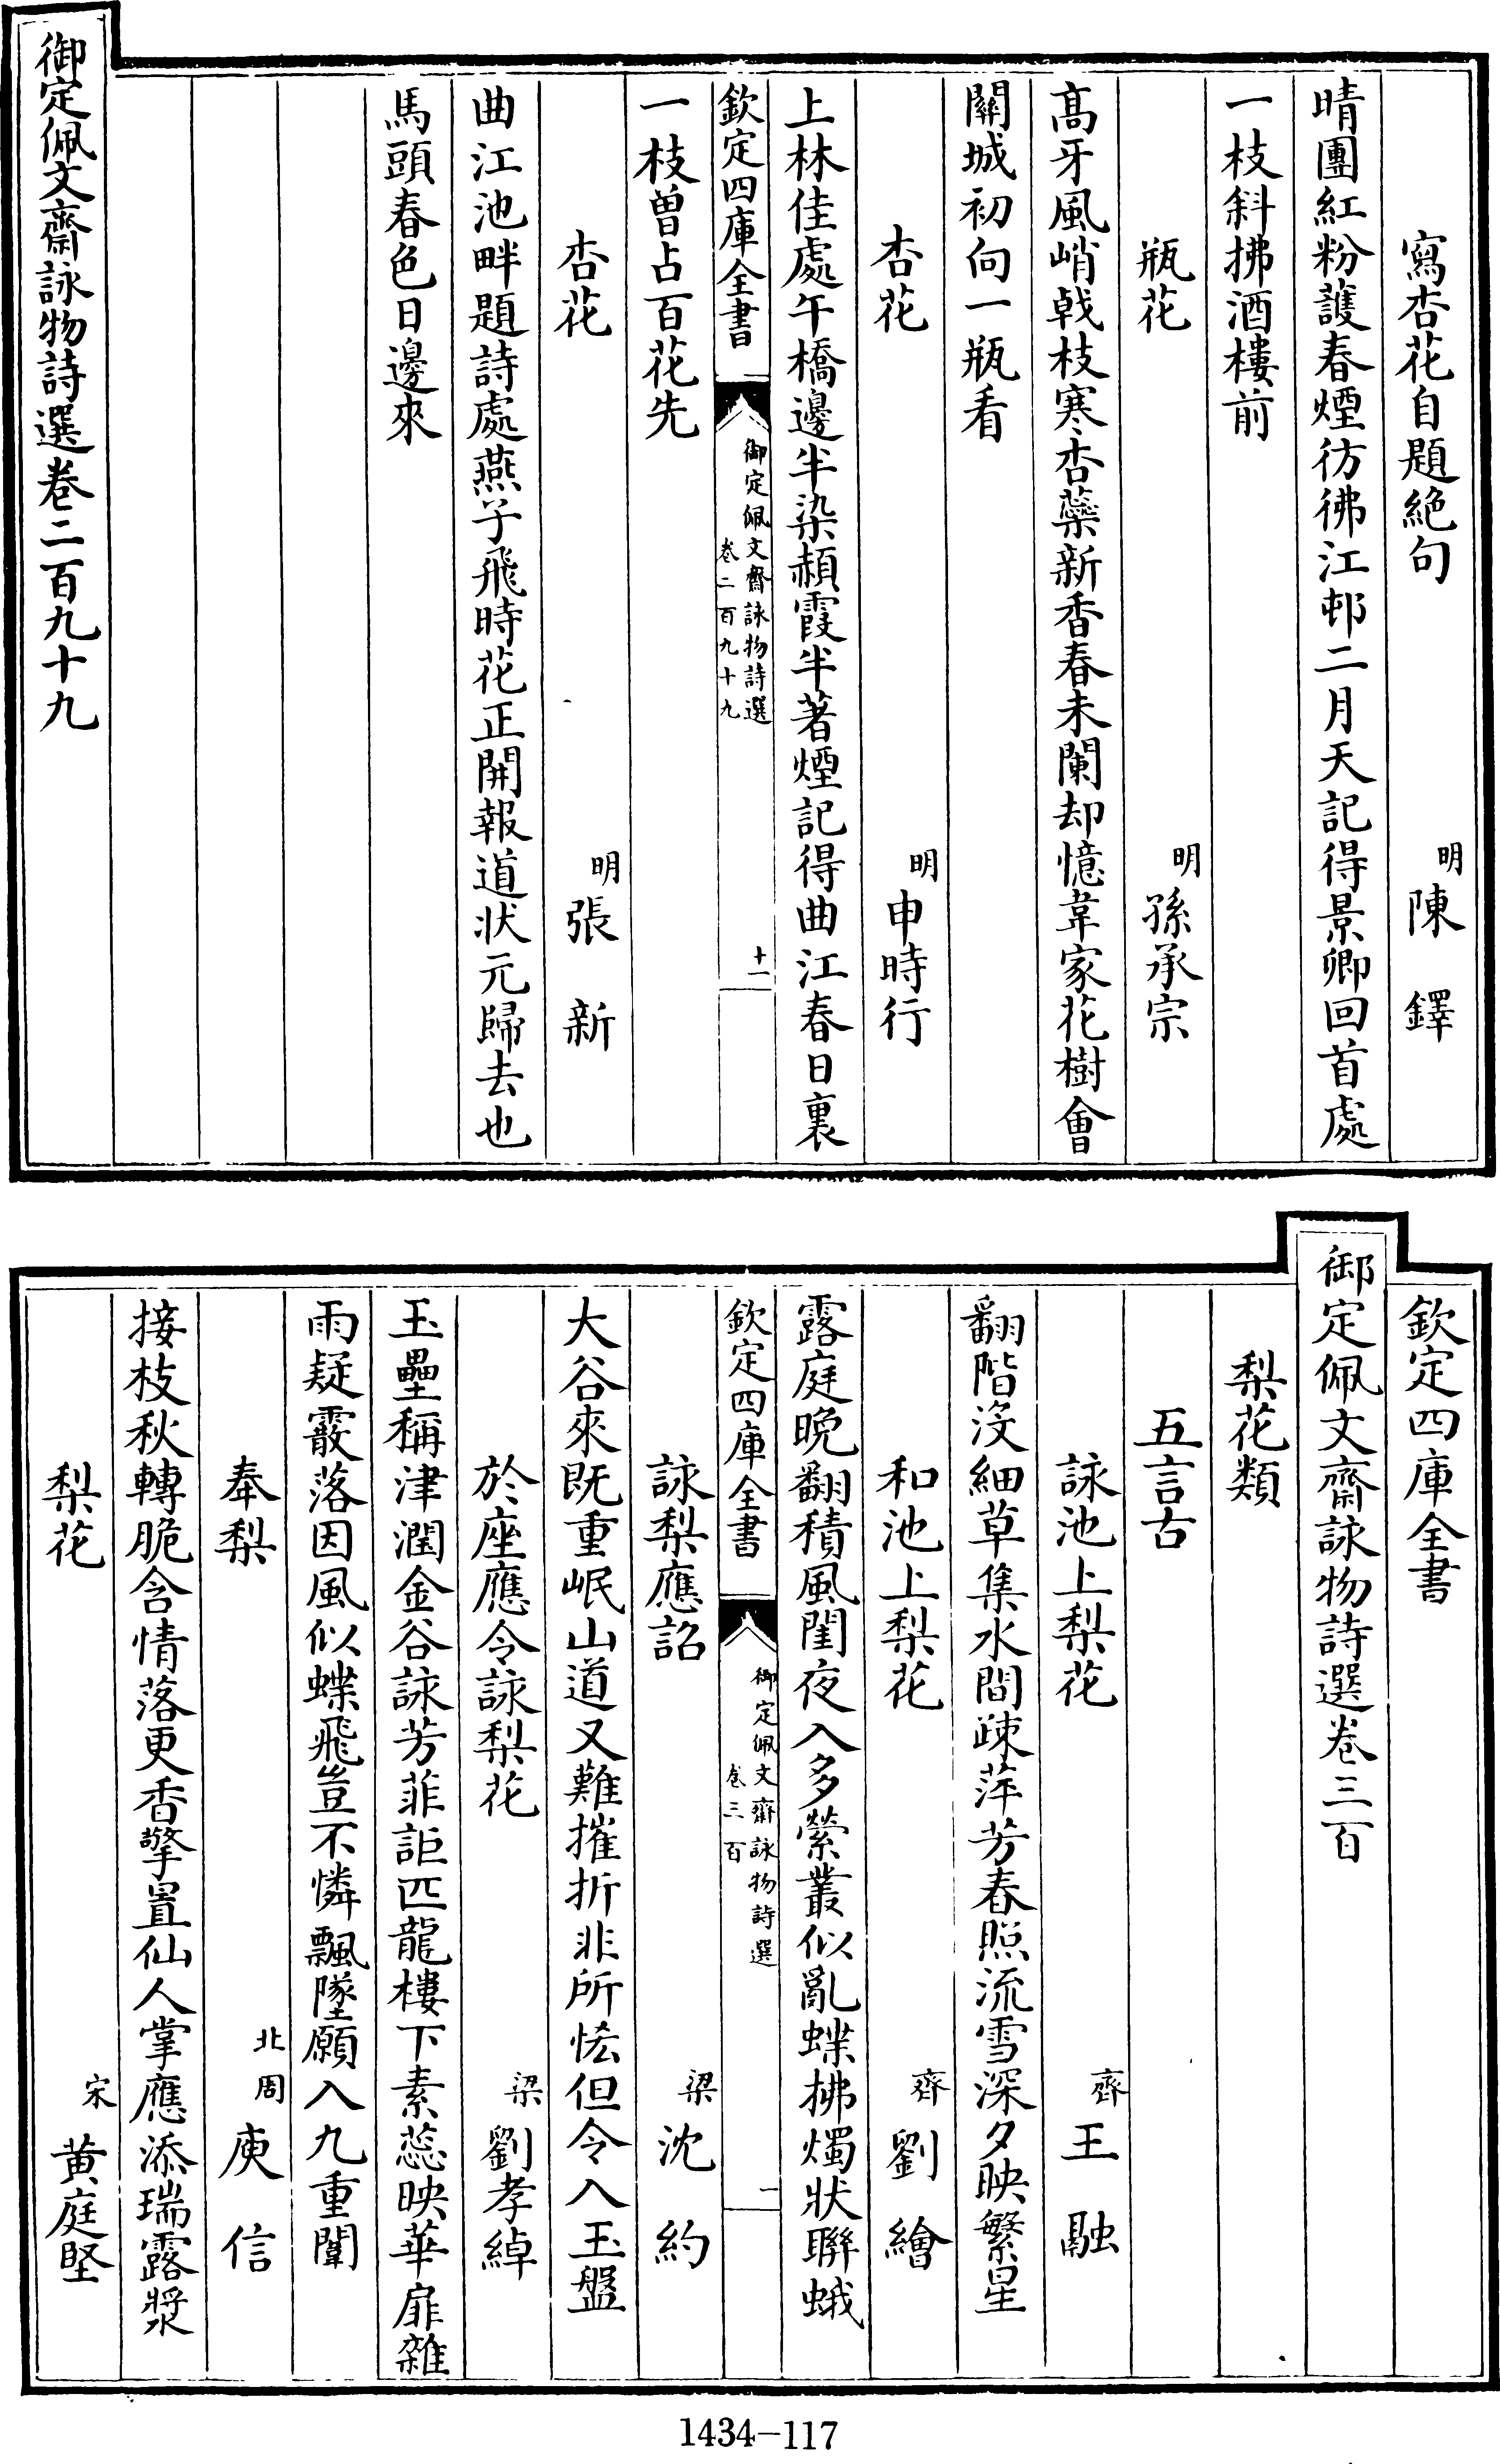 寫杏花自題絶句　明陳鐸
晴團紅粉護春煙彷彿江邨二月天記得景卿回首處
一枝斜拂酒樓前
瓶花　明孫承宗
髙牙風峭㦸枝寒杏蘂新香春未闌却憶韋家花樹會
關城初向一瓶看
杏花　明申時行
上林佳處午橋邊半染赬霞半著煙記得曲江春日裏
欽定四庫全書　御定佩文齋詠物詩選　卷二百九十九　十一
一枝曽占百花先
杏花　明張新
曲江池畔題詩處燕子飛時花正開報道狀元歸去也
馬頭春色日邊來
御定佩文齋詠物詩選卷二百九十九
欽定四庫全書
御定佩文齋詠物詩選卷三百
梨花類
五言古
詠池上梨花　齊王融
翻階沒細草集水間疎萍芳春照流雪深夕映繁星
和池上梨花　齊劉繪
露庭晩翻積風閨夜入多縈叢似亂蝶拂燭狀聯蛾
欽定四庫全書　御定佩文齋詠物詩選　卷三百　一
詠梨應詔　梁沈約
大谷來既重岷山道又難摧折非所恡但令入玉盤
於座應令詠梨花　梁劉孝綽
玉壘稱津潤金谷詠芳菲詎匹龍樓下素蕊映華扉雜
雨疑霰落因風似蝶飛豈不憐飄墜願入九重闈
奉梨　北周庾信
接枝秋轉脆含情落更香擎置仙人掌應添瑞露漿
梨花　宋黄庭堅
1434-117